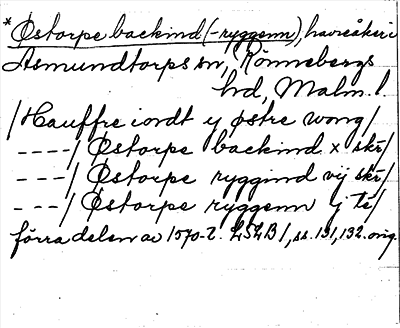 *Østorpe backind (-ryggenn), havreåker i
Asmundtorps sn, Rönnebergs
hd, Malm. l.
/Hauffre iordt y østre wong/
----/ Østorpe backind x skr/
---/ Østorpe ryggind vij skr/
---/ Østorpe ryggenn j te/
förra delen av 1570-t. LSLB 1, ss. 131, 132. orig.